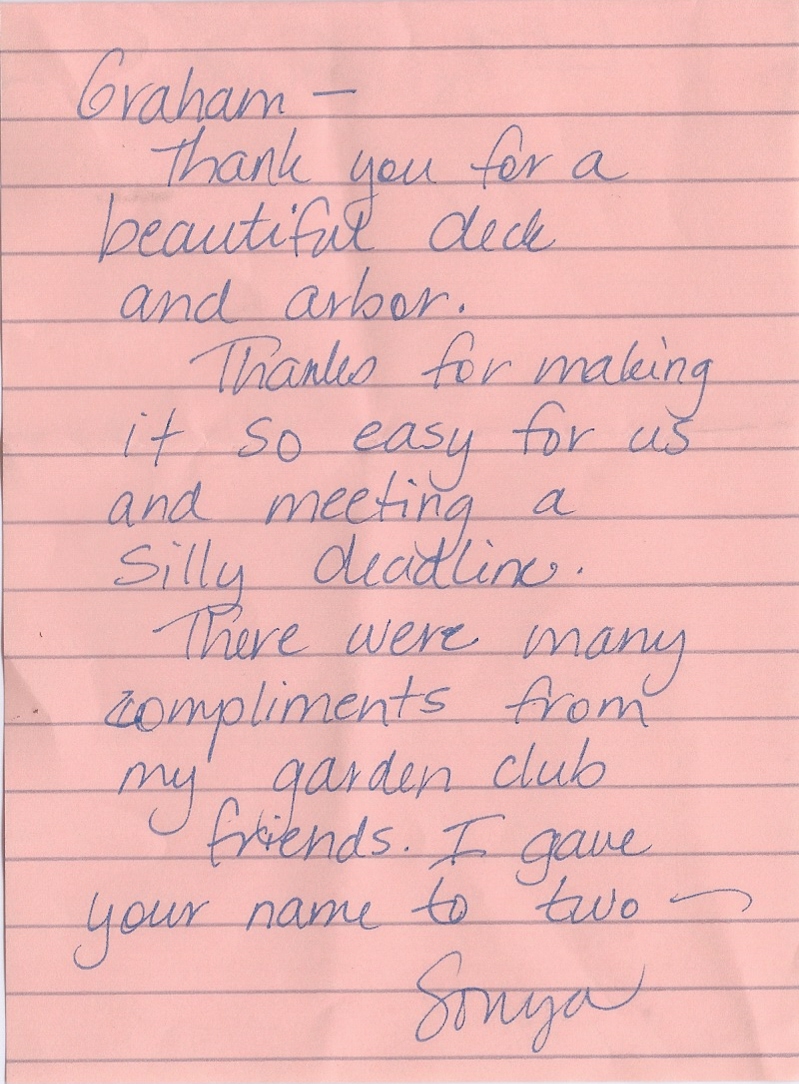 Graham —
Thank you for a
beautiful deck
and arbor.
Thanks for making
it so easy for us
and meeting a
silly deadline.
There were many
compliments from
my garden club
friends. I gave
your name to two —
Sonya